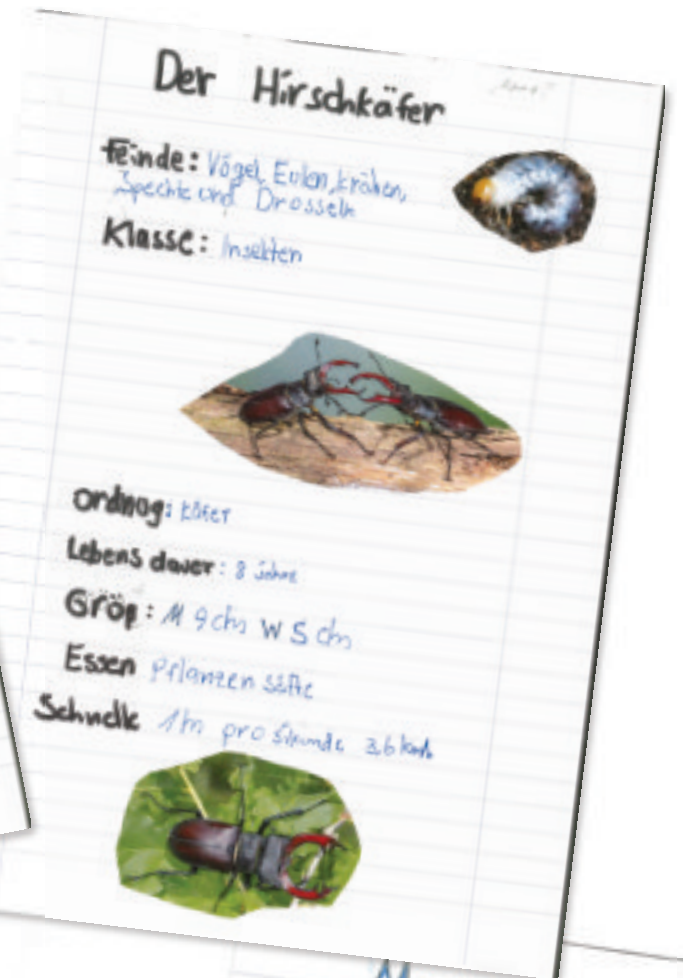 Der Hirschkäfer
Feinde: Vögel, Eulen, krähen,
Spechte und Drosseln
Klasse: Insekten
Ordnog: käfer
Lebens dauer: 8 Jahre
Gröp: M 9 cm W 5 cm
Essen Pflanzen säfte
Schnelle 1m pro Sekunde 3,6 kmh